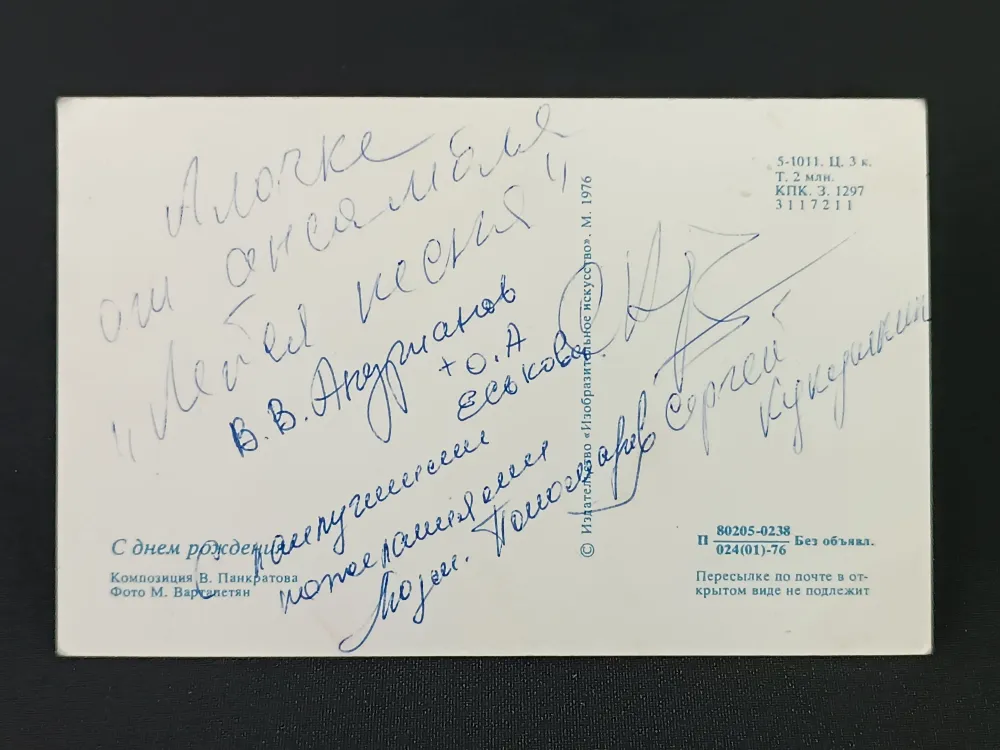 Алочке
от ансамбля
"Лейся песня"
В.В. Андрианов
+ О.А
Еськова
С наилучшими
пожеланиями
Пономарёв
Сергей
Кукушкин
5-1011. Ц. 3 к.
Т. 2 млн.
КПК. З. 1297
3117211
© Издательство «Изобразительное искусство». М. 1976
С днем рождения
Композиция В. Панкратова
Фото М. Вартапетян
П 80205-0238
024(01)-76 Без объявл.
Пересылке по почте в от-
крытом виде не подлежит